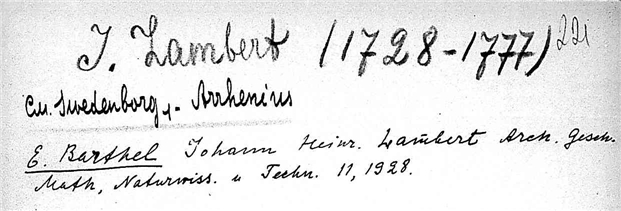 J. Lambert (1728-1777) 221
См. Swedenborg, Arrhenius
E. Barthel Johann Heinr. Lambert Arch. Gesch.
Math, Naturwiss. u Techn. 11, 1928.